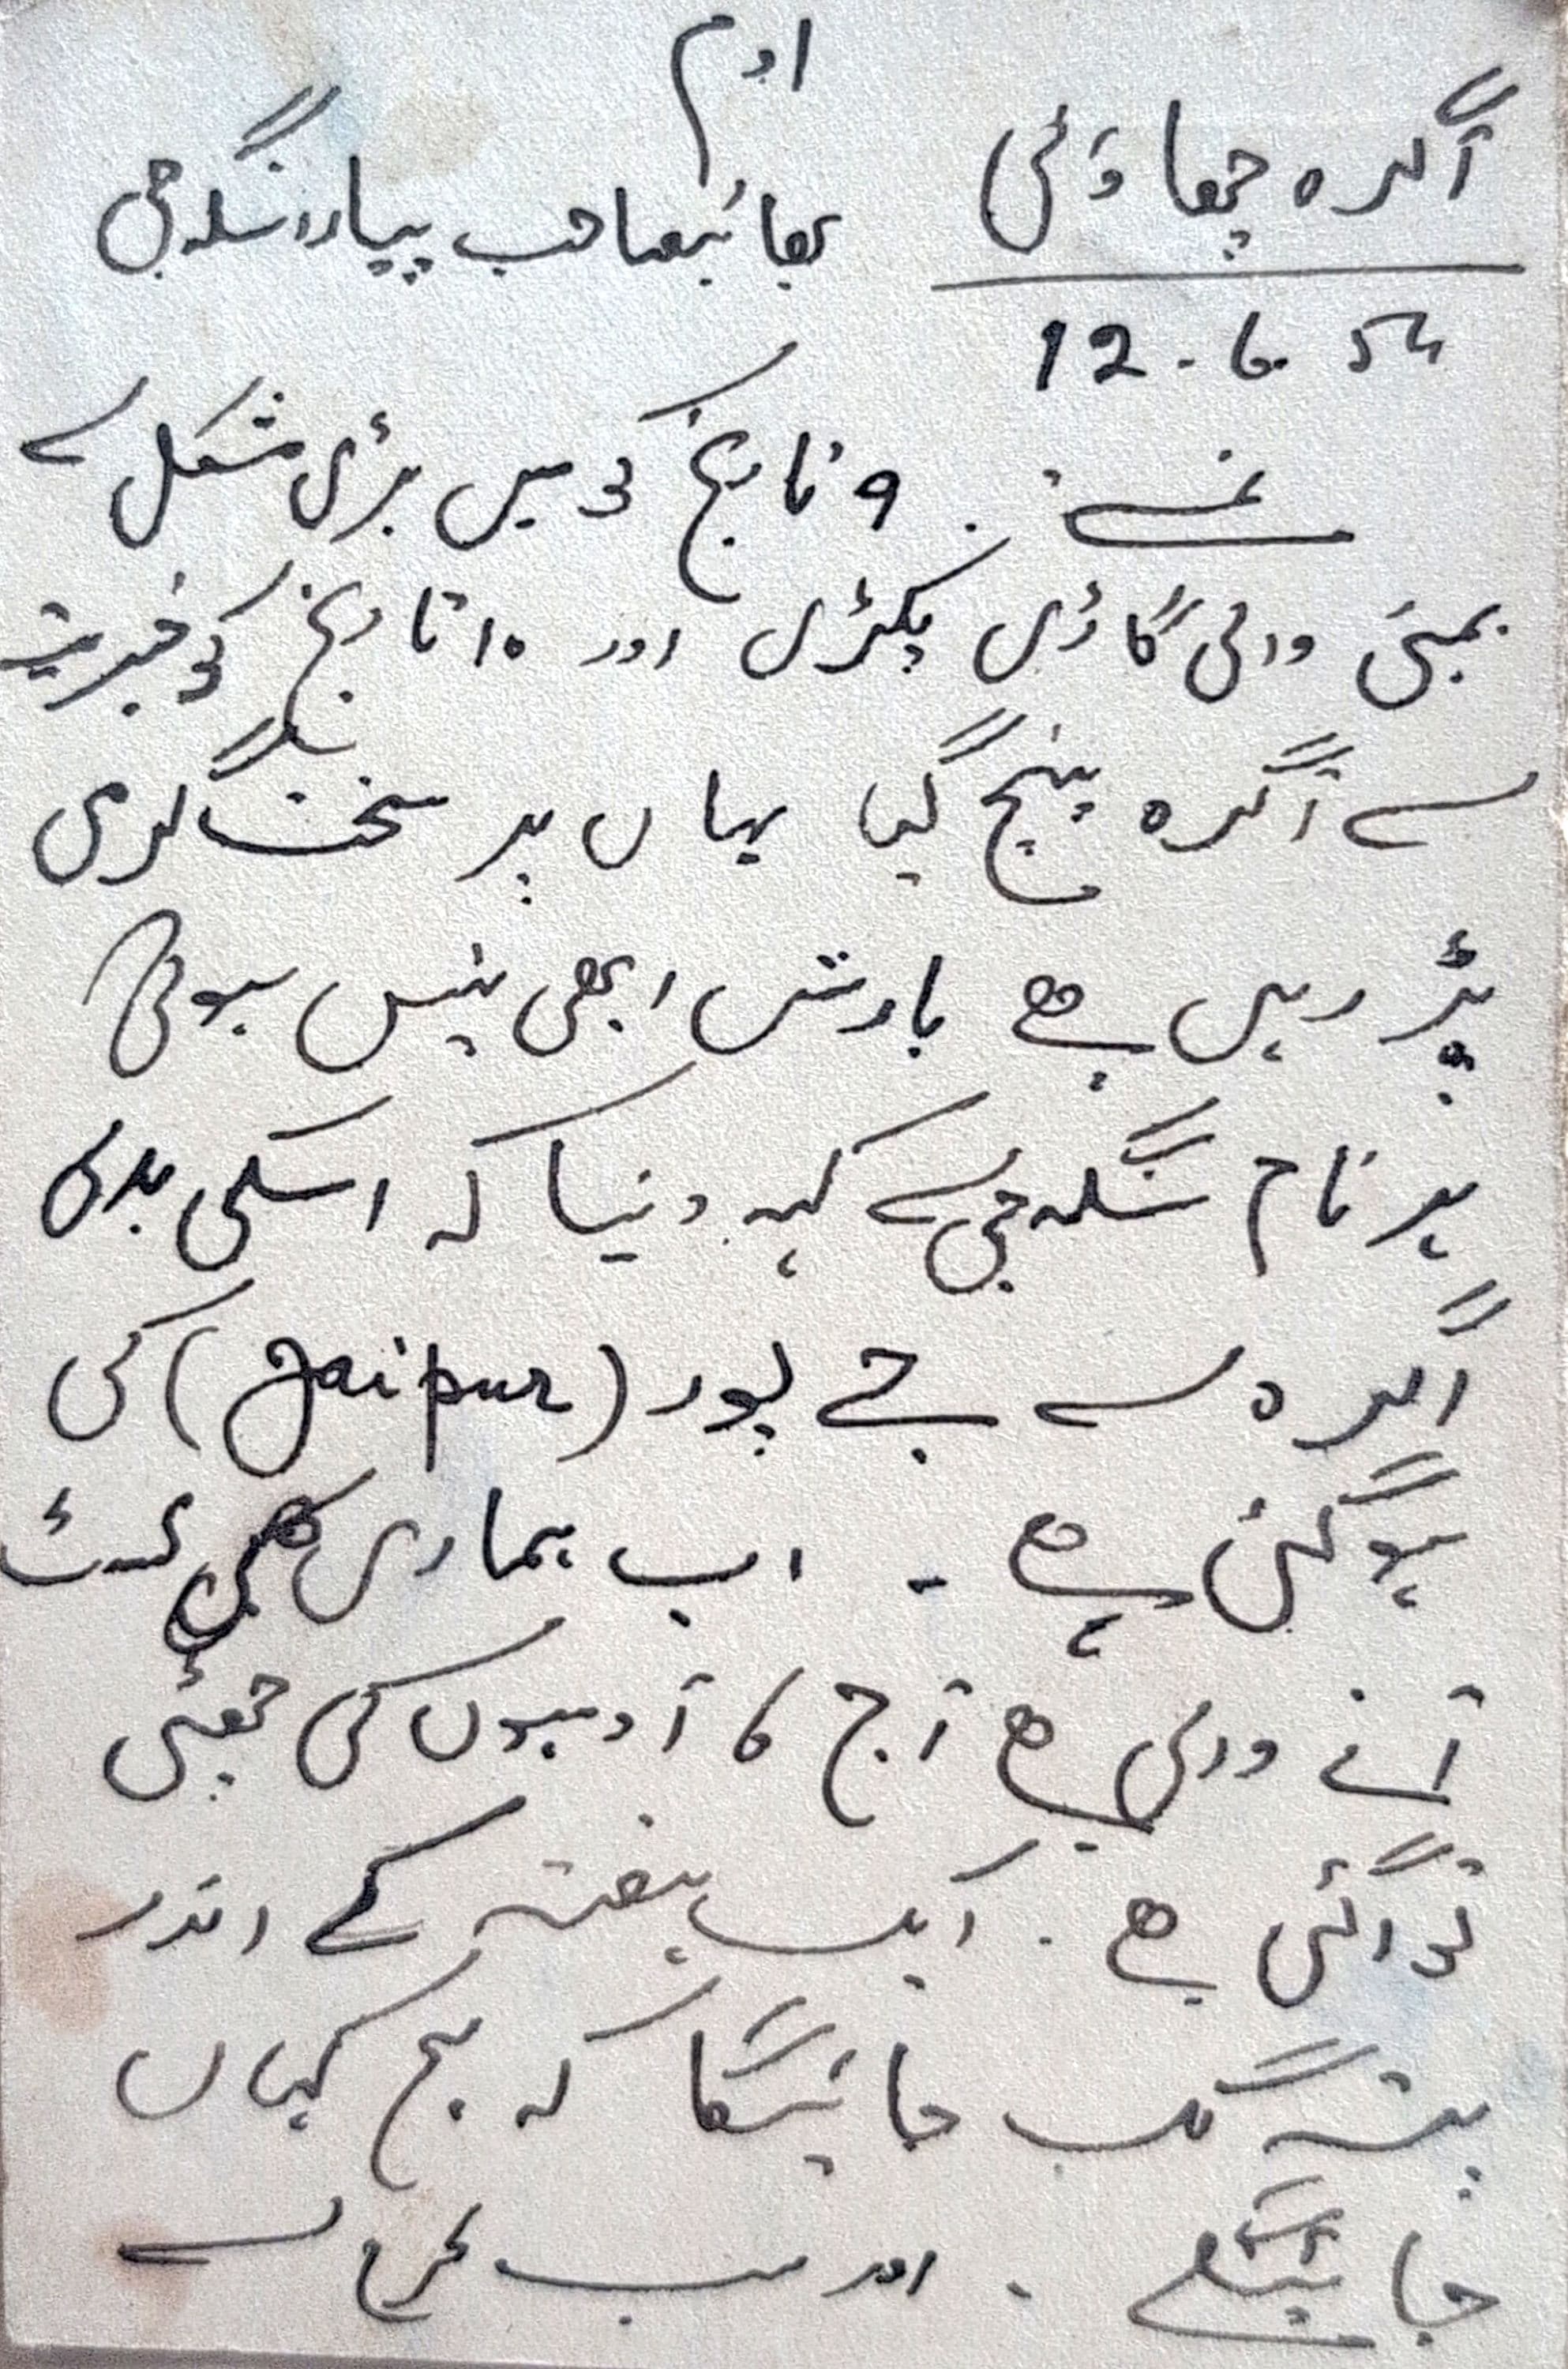 اوم
آگرہ چھاؤنی
بھائیصاحب پیارا سنگھ جی
12.6.54
نمستے . ۹ تاریخ کو میں بڑی مشکل سے
بمبئی والی گاڑی پکڑی اور ۱۰ تاریخ کو خیریت
سے آگرہ پہنچ گیا یہاں پر سخت گرمی
پڑ رہی ہے بارش ابھی نہیں ہوئی
ہرنام سنگھ جی سے کہہ دینا کہ اسکی بدلی
آگرہ سے جے پور (Jaipur) کی
ہو گئی ہے - اب ہماری بھی
آنے والی ہے آج کا آدمیوں کی چھٹی
تو آگئی ہے . ایک ہفتہ کے اندر
پتہ لگ جائیگا کہ ہم کہاں
جائینگے . اور سب طرح سے